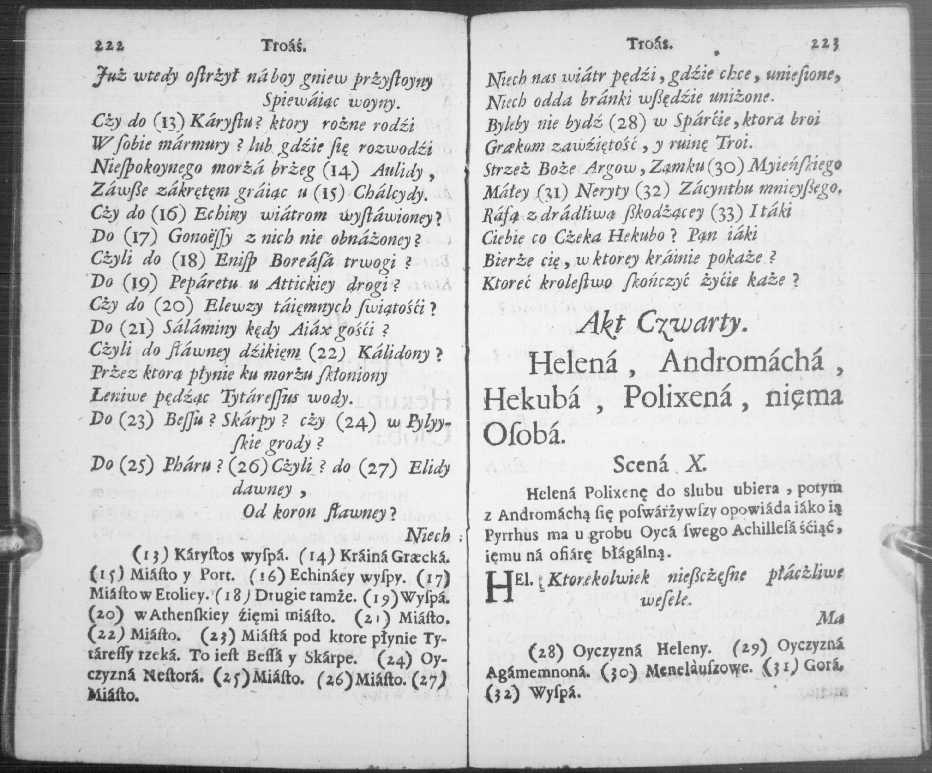 222 Troáś.
Już wtedy oſtrżył náboy gniew prżyſtoyny
Spiewáiąc woyny.
Cży do (13) Káryſtu? ktory rożne rodźi
W ſobie mármury? lub gdźie ſię rozwodźi
Nieſpokoynego morżá brżeg (14) Aulidy,
Záwſße zákrętęm gráiąc u (15) Chálcydy.
Cży do (16) Echiny wiátrom wyſtáwioney?
Do (17) Gonoëſſy z nich nie obnáżoney?
Cżyli do (18) Eniſp Boreáſá trwogi?
Do (19) Pepáretu u Attickiey drogi?
Cży do (20) Elewzy táięmnych ſwiątośći?
Do (21) Sáláminy kędy Aiáx gośći?
Cżyli do ſłáwney dźikięm (22) Kálidony?
Przez ktorą płynie ku morżu ſkłoniony
Łeniwe pędźąc Tytáreſſus wody.
Do (23) Beſſu? Skárpy? cży (24) w Pylyy-
ſkie grody?
Do (25) Pháru? (26) Cżyli? do (27) Elidy
dawney,
Od koron ſławney?
Niech
(13) Káryſtos wyſpá. (14) Kráiná Græcká.
(15) Miáſto y Port. (16) Echináey wyſpy. (17)
Miáſto w Etoliey. (18) Drugie tamże. (19) Wyſpá.
(20) w Athenſkiey źięmi miáſto. (21) Miáſto.
(22) Miáſto. (23) Miáſtá pod ktore płynie Ty-
táreſſy rzeká. To ieſt Beſſá y Skárpe. (24) Oy-
czyzná Neſtorá. (25) Miáſto. (26) Miáſto. (27)
Miáſto.
Troás. 223
Niech nas wiátr pędźi, gdźie chce, unieſione,
Niech odda bránki wſßędźie uniżone.
Byleby nie bydź (28) w Spárćie, ktora broi
Grækom zawźiętość, y ruinę Troi.
Strzeż Boże Argow, Zamku (30) Myieńſkiego
Máłey (31) Neryty (32) Zácynthu mnieyſßego.
Ráfą z drádliwą ſßkodźącey (33) Itáki
Ciebie co Cżeka Hekubo? Pąn iáki
Bierże cię, w ktorey kráinie pokaże?
Ktoreć kroleſtwo ſkończyć życie każe?
Akt Czwarty.
Helená, Andromáchá,
Hekubá, Polixená, nięma
Oſobá.
Scená X.
Helená Polixenę do slubu ubiera, potym
z Andromáchą ſię poſwárżywſzy opowiáda iáko ią
Pyrrhus ma u grobu Oycá ſwego Achilleſá śćiąć,
ięmu ná ofiárę błágálną.
HEl. Ktorekolwiek nießczęſne płáczliwe
weſele.
Ma
(28) Oyczyzná Heleny. (29) Oyczyzná
Agámemnoná. (30) Menelàuſzowe. (31) Gorá.
(32) Wyſpá.